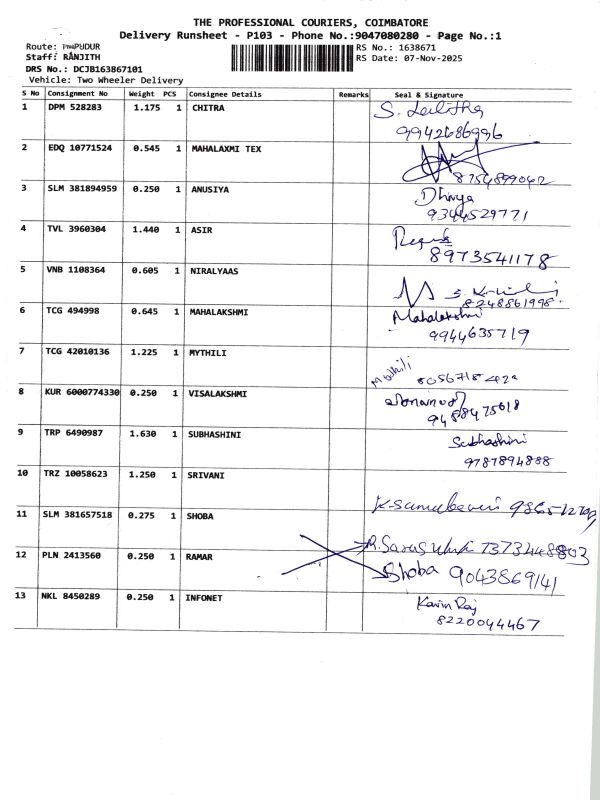 THE PROFESSIONAL COURIERS, COIMBATORE
Delivery Runsheet - P103 - Phone No.:9047080280 - Page No.:1
Route: PUDUR RS No.: 1638671
Staff: RANJITH RS Date: 07-Nov-2025
DRS No.: DCJB163867101
Vehicle: Two Wheeler Delivery
S No Consignment No Weight PCS Consignee Details Remarks Seal & Signature
1 DPM 528283 1.175 1 CHITRA S. Lalitha
9942686996
2 EDQ 10771524 0.545 1 MAHALAXMI TEX
8754899042
3 SLM 381894959 0.250 1 ANUSIYA Dhivya
9344529771
4 TVL 3960304 1.440 1 ASIR
8973541178
5 VNB 1108364 0.605 1 NIRALYAAS
8248861998
6 TCG 494998 0.645 1 MAHALAKSHMI Mahalakshmi
9944635719
7 TCG 42010136 1.225 1 MYTHILI
8 KUR 6000774330 0.250 1 VISALAKSHMI
9488475618
9 TRP 6490987 1.630 1 SUBHASHINI Subhashini
9787894888
10 TRZ 10058623 1.250 1 SRIVANI
11 SLM 381657518 0.275 1 SHOBA
12 PLN 2413560 0.250 1 RAMAR
Shoba 9043869141
13 NKL 8450289 0.250 1 INFONET Kavin Raj
8220044467